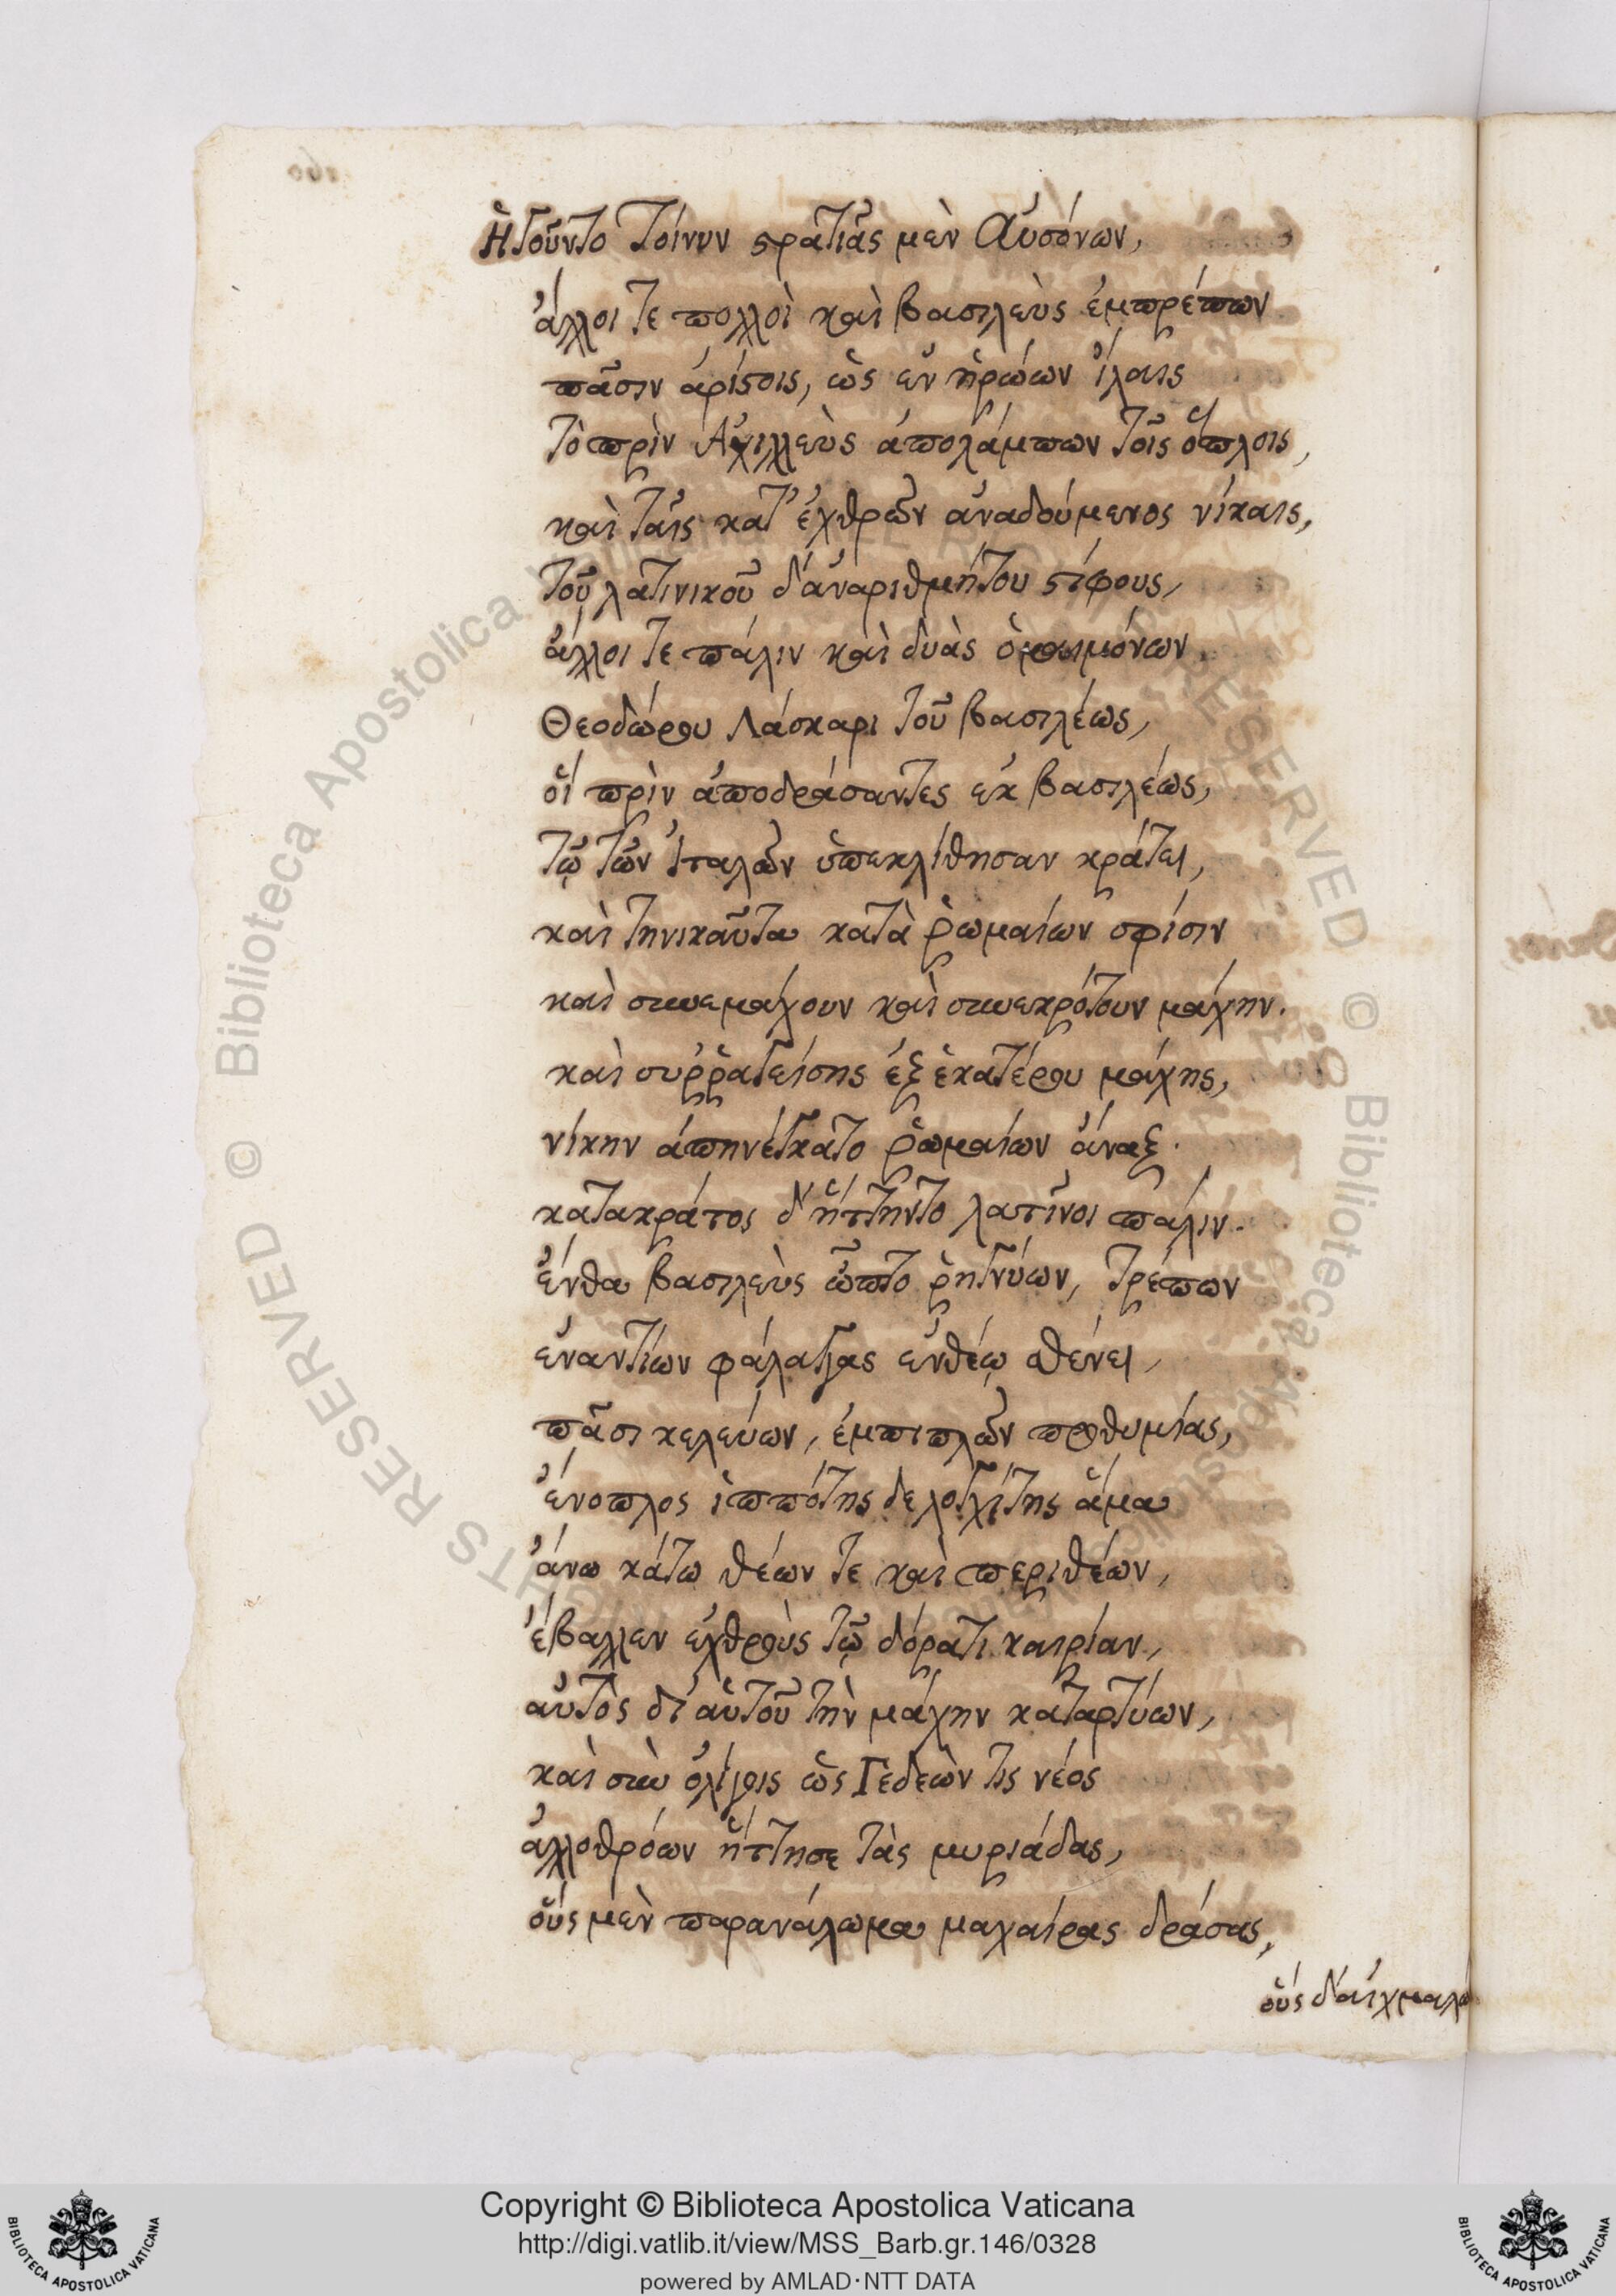 Ἡγοῦντο τοίνυν στρατιᾶς μὲν Αὐσόνων,
ἄλλοι τε πολλοὶ καὶ βασιλεὺς ἐμπρέπων
πᾶσιν ἀρίστοις, ὡς ἐν ἡρώων ἴλαις
τὸ πρὶν Ἀχιλλεὺς ἀπολάμπων τοῖς ὅπλοις,
καὶ ταῖς κατ' ἐχθρῶν ἀναδούμενος νίκαις,
τοῦ λατινικοῦ δ' ἀναριθμήτου στίφους,
ἄλλοι τε πάλιν καὶ δυὰς ὁμαιμόνων
Θεοδώρου Λάσκαρι τοῦ βασιλέως,
οἳ πρὶν ἀποδράσαντες ἐκ βασιλέως,
τῷ τῶν Ἰταλῶν ὑπεκλίθησαν κράτει,
καὶ τηνικαῦτα κατὰ ῥωμαίων σφίσιν
καὶ συνεμάχουν καὶ συνεκρότουν μάχην.
καὶ συῤῥαγείσης ἐξ ἑκατέρου μάχης,
νίκην ἀπηνέγκατο ῥωμαίων ἄναξ.
κατακράτος δ' ἥττηντο λατῖνοι πάλιν.
ἔνθα βασιλεὺς ὦπτο ῥηγνύων, τρέπων
ἐναντίων φάλαγγας ἐνθέῳ σθένει,
πᾶσι κελεύων, ἐμπιπλῶν προθυμίας,
ἔνοπλος ἱππότης δε λογχίτης ἅμα
ἄνω κάτω θέων τε καὶ περιθέων,
ἔβαλλεν ἐχθροὺς τῷ δόρατι καιρίαν,
αὐτὸς δι' αὑτοῦ τὴν μάχην καταρτύων,
καὶ σὺν ὀλίγοις ὡς Γεδεὼν τις νέος
ἀλλοθρόων ἥττησε τὰς μυριάδας,
οὓς μὲν παρανάλωμα μαχαίρας δράσας,
οὓς δ' αἰχμαλώ
Copyright © Biblioteca Apostolica Vaticana
http://digi.vatlib.it/view/MSS_Barb.gr.146/0328
powered by AMLAD·NTT DATA